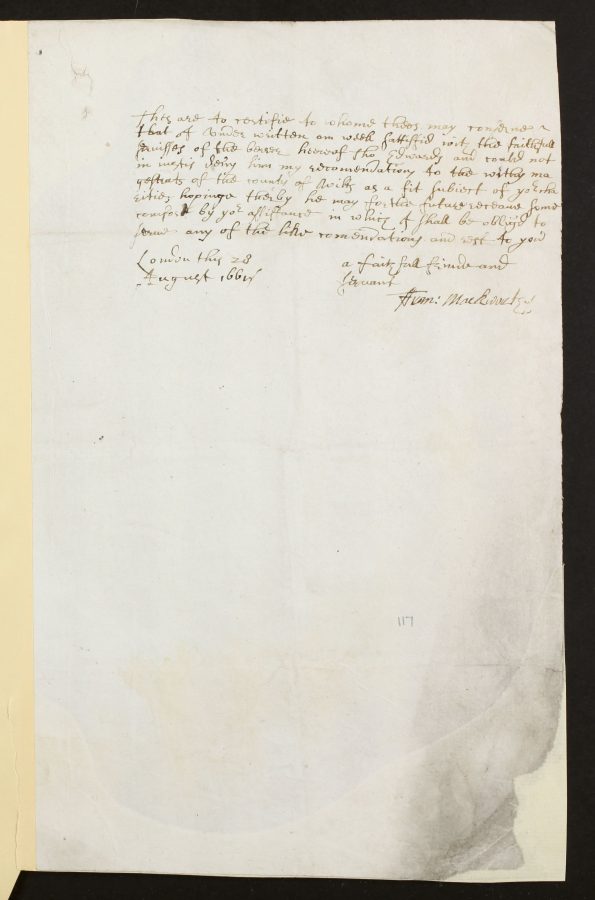 Thes are to certifie to whome theas may conserne
that I vnder written am well sattisfied with the faithfull
seruisses of the bearer heereof Tho Edwards and could not
in justis deny him my recomendations to the worthy ma
gestrats of the county of Wilts as a fit subiect of yor cha
rities hopinge therby he may for the future receaue some
comfort by yor assistance in which I shall be obliged to
serue any of the like comendations and rest to you
London this 28
August 1661
a faithfull frinde and
servant
Hum: Mackworth
117